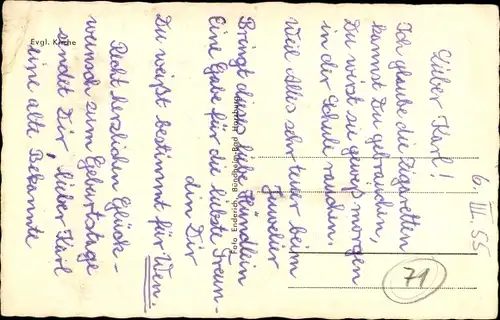 Lieber Karl!
Ich glaube die Zigaretten
kannst Du gebrauchen,
Du wirst sie gewiß morgen
in der Schule rauchen.
Weil Alles sehr teuer beim
Juwelier
Bringt dieses liebe Hündlein
Eine Gabe für die liebste Freun-
din Dir
Du weißt bestimmt für Wen.
Recht herzlichen Glück-
wunsch zum Geburtstage
sendet Dir, lieber Karl
eine alte Bekannte
6. III. 55
71
Evgl. Kirche
Foto Enderich, Bündheim-Bad Harzburg